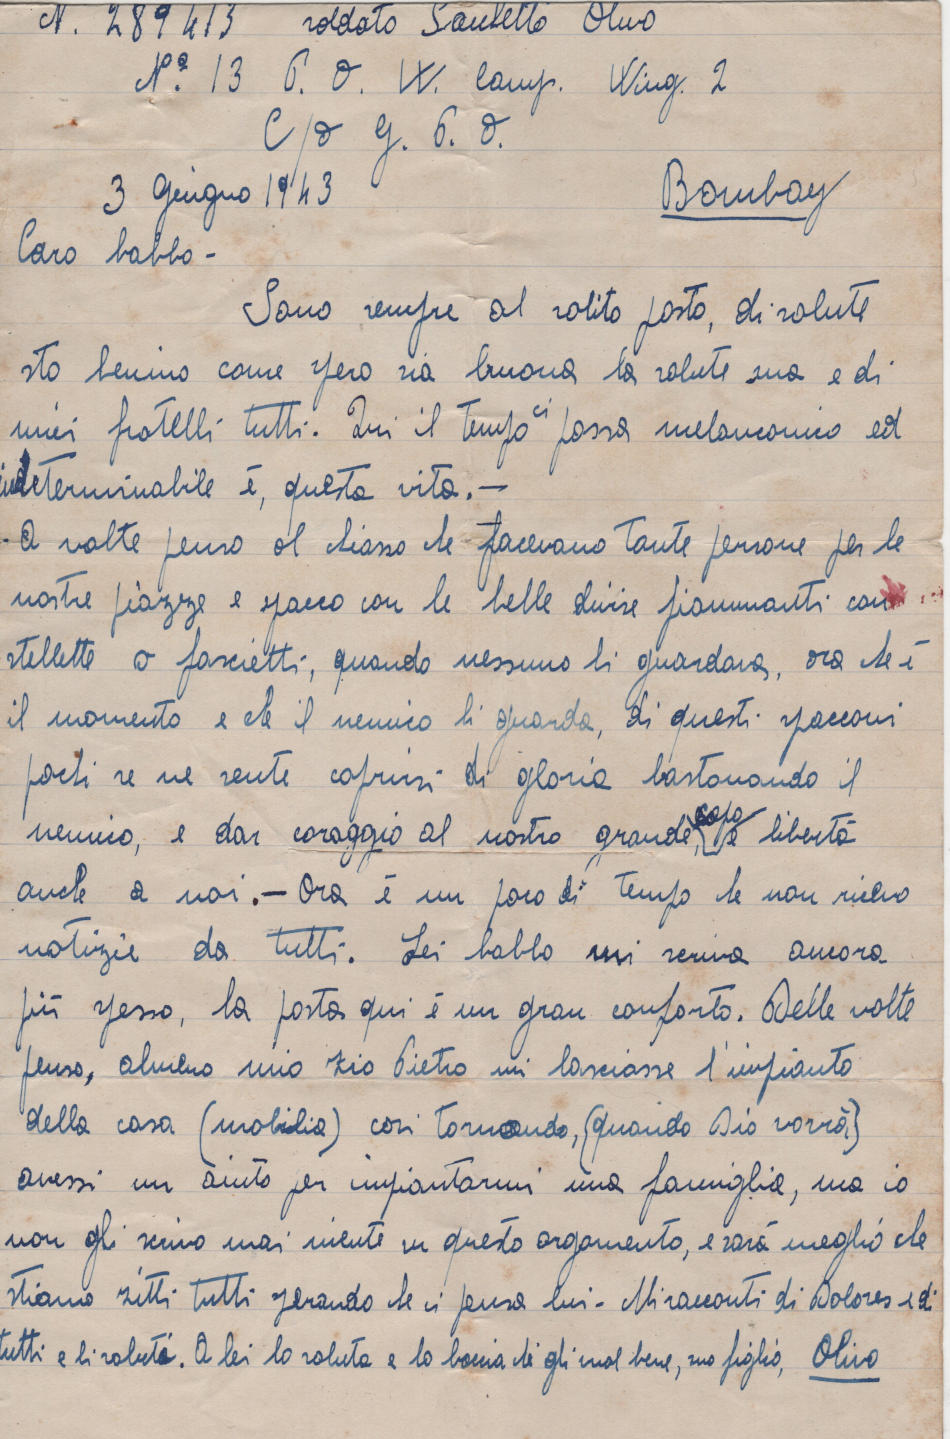 N. 289413 soldato Santello Olivo
N.º 13 P. O. W. Camp. Wing. 2
C/O G. P. O.
3 Giugno 1943 Bombay
Caro babbo -
Sono sempre al solito posto, di salute
sto benino come spero sia buona la salute sua e di
miei fratelli tutti. Qui il tempo ci passa melanconico ed
indeterminabile è, questa vita. —
A volte penso al chiasso che facevano tante persone per le
nostre piazze e spacco con le belle divise fiammanti con
stellette o fascietti, quando nessuno li guardava, ora che è
il momento e che il nemico li guarda, di questi spacconi
pochi se ne sente coprirsi di gloria bastonando il
nemico, e dar coraggio al nostro grande, capo e libertà
anche a noi. — Ora è un poco di tempo che non ricevo
notizie da tutti. Lei babbo mi scriva ancora
più spesso, la posta qui è un gran conforto. Delle volte
penso, almeno mio zio Pietro mi lasciasse l'impianto
della casa (mobilia) cosi tornando, (quando Dio vorrà)
avessi un aiuto per impiantarmi una famiglia, ma io
non gli scrivo mai niente su questo argomento, e sarà meglio che
stiamo zitti tutti sperando che ci pensa lui - Mi racconti di Dolores e di
tutti e li saluti. A lei lo saluta e lo bacia chi gli vuol bene, suo figlio, Olivo